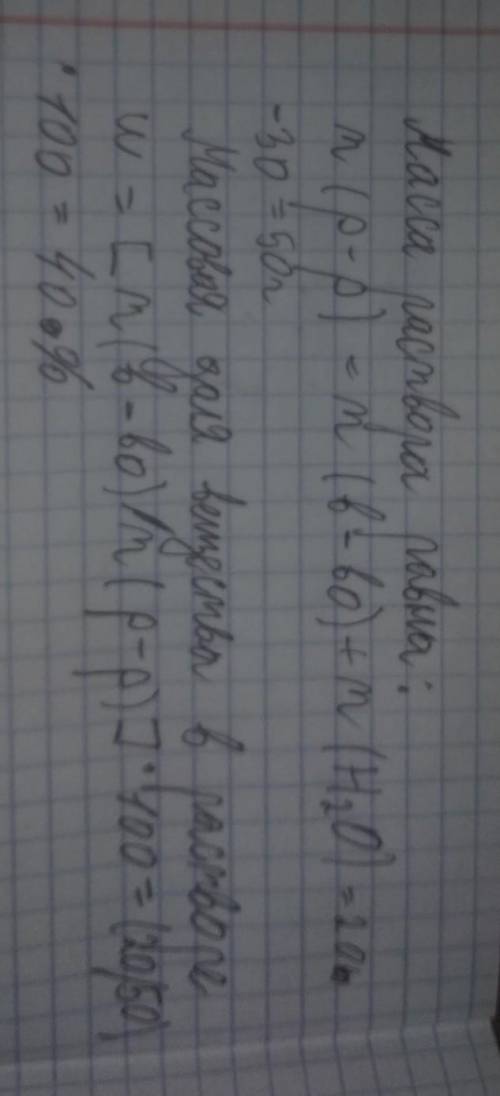 Масса раствора равна:
m(р-р) = m(в-во) + m(H₂O) = 20+
-30 = 50г
Массовая доля вещества в растворе
w = [m(в-во)/m(р-р)]·100 = (20/50)
·100 = 40%